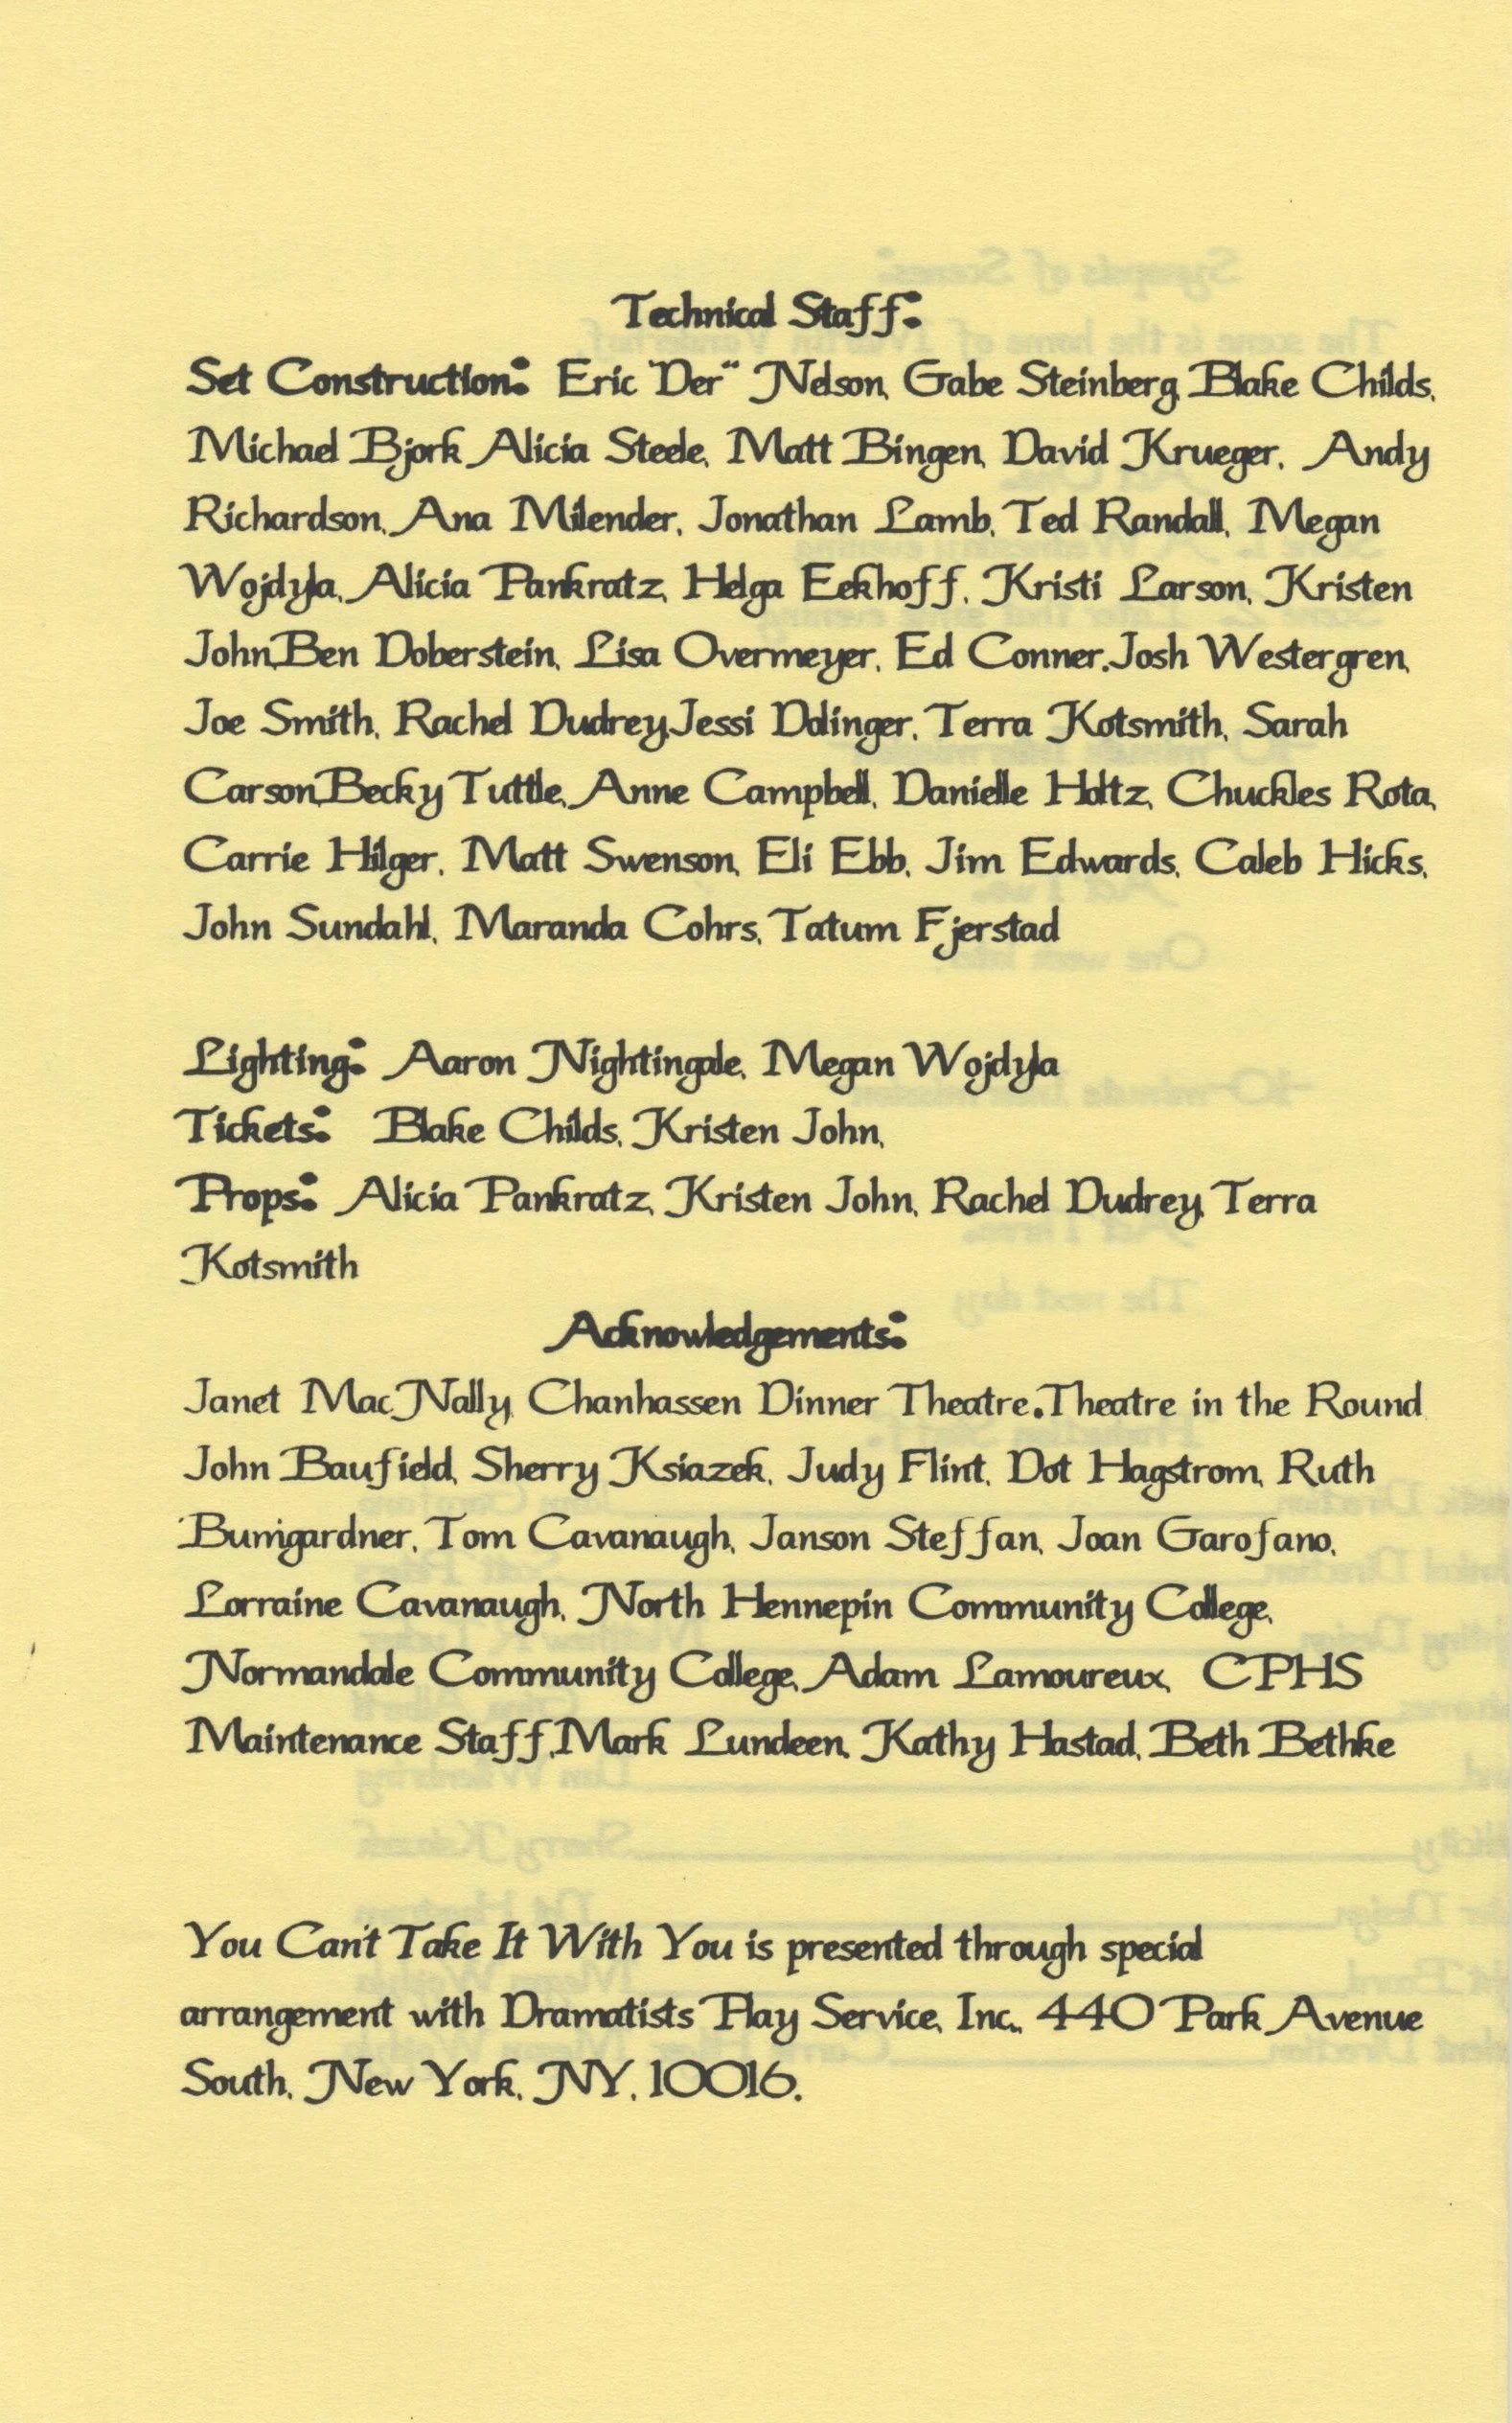 Technical Staff:
Set Construction: Eric "Der" Nelson, Gabe Steinberg, Blake Childs,
Michael Bjork, Alicia Steele, Matt Bingen, David Krueger, Andy
Richardson, Ana Milender, Jonathan Lamb, Ted Randall, Megan
Wojdyla, Alicia Pankratz, Helga Eekhoff, Kristi Larson, Kristen
John,Ben Doberstein, Lisa Overmeyer, Ed Conner,Josh Westergren,
Joe Smith, Rachel Dudrey,Jessi Dolinger, Terra Kotsmith, Sarah
Carson,Becky Tuttle, Anne Campbell, Danielle Holtz, Chuckles Rota,
Carrie Hilger, Matt Swenson, Eli Ebb, Jim Edwards, Caleb Hicks,
John Sundahl, Maranda Cohrs, Tatum Fjerstad
Lighting: Aaron Nightingale, Megan Wojdyla
Tickets: Blake Childs, Kristen John,
Props: Alicia Pankratz, Kristen John, Rachel Dudrey, Terra
Kotsmith
Acknowledgements:
Janet MacNally, Chanhassen Dinner Theatre,Theatre in the Round
John Baufield, Sherry Ksiazek, Judy Flint, Dot Hagstrom, Ruth
Bumgardner, Tom Cavanaugh, Janson Steffan, Joan Garofano,
Lorraine Cavanaugh, North Hennepin Community College,
Normandale Community College, Adam Lamoureux, CPHS
Maintenance Staff,Mark Lundeen, Kathy Hastad, Beth Bethke
You Can't Take It With You is presented through special
arrangement with Dramatists Play Service, Inc., 440 Park Avenue
South, New York, NY, 10016.